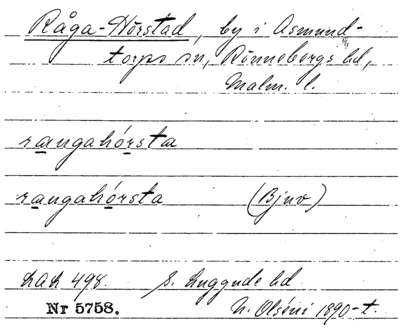 Råga-Hörstad, by i Asmund-
torps sn, Rönnebergs hd,
Malm. l.
raŋgahǫ́rsta
raŋgahǫ́rsta (Bjuv)
LAL 498. S. Luggude hd
Nr 5758. N. Olséni 1890-t.